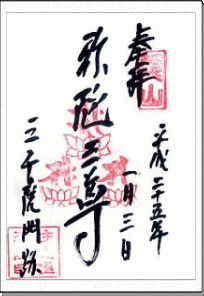 奉拝
平成二十五年
一月三日
弥陀三尊
三千院門跡